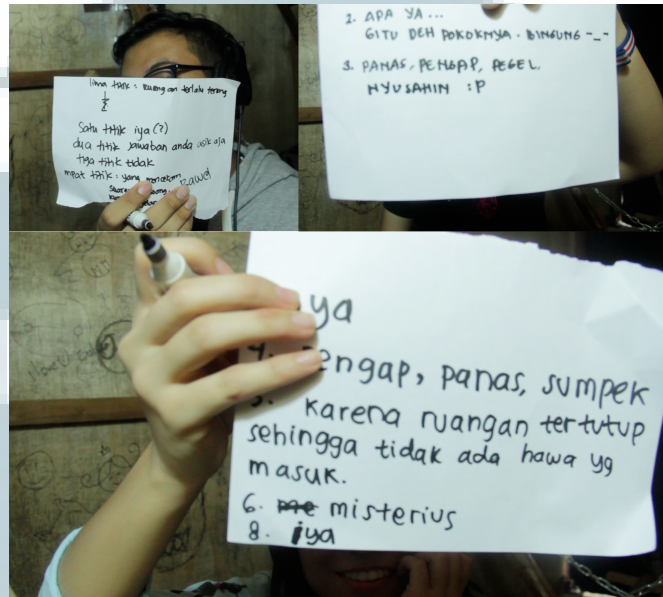 lima titik : Ruangan terlalu terang
Satu titik iya (?)
dua titik jawaban anda asik aja
tiga titik tidak
mpat titik : yang mencekam
2. APA YA...
GITU DEH POKOKNYA. BINGUNG -_-
3. PANAS, PENGAP, PEGEL.
NYUSAHIN :P
ya
engap, panas, sumpek
karena ruangan tertutup
sehingga tidak ada hawa yg
masuk.
6. misterius
8. iya